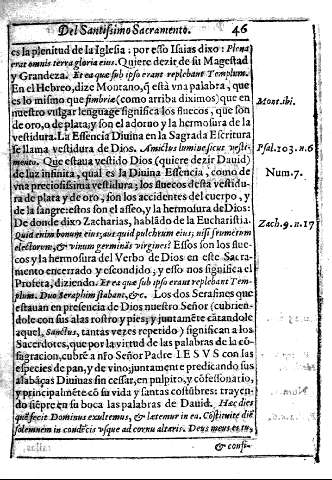 Del Santissimo Sacramento. 46
es la plenitud de la Iglesia: por esso Isaias dixo: Plena
erat omnis terra gloria eius. Quiere dezir de su Magestad
y Grandeza. Et ea quæ sub ipso erant replebant Templum.
En el Hebreo, dize Montano, q̃ está vna palabra, que
es lo mismo que fimbriæ (como arriba diximos) que en
Mont. ibi.
nuestro vulgar lenguage significa los fluecos, que son
de oro, o de plata, y son el adorno y la hermosura de la
vestidura. La Essencia Diuina en la Sagrada Escritura
se llama vestidura de Dios. Amictus lumine sicut vesti-
Psal. 103. n. 6
mento. Que estaua vestido Dios (quiere dezir Dauid)
de luz infinita, qual es la Diuina Essencia, como de
Num. 7.
vna preciosissima vestidura; los fluecos desta vestidu-
ra de plata y de oro, son los accidentes del cuerpo, y
de la sangre; estos son el asseo, y la hermosura de Dios:
De donde dixo Zacharias, hablãdo de la Eucharistia.
Zach. 9. n. 17
Quid enim bonum eius, aut quid pulchrum eius; nisi frumẽtum
electorum, & vinum germinãs virgines? Essos son los flue-
cos y la hermosura del Verbo de Dios en este Sacra-
mento encerrado y escondido; y esso nos significa el
Profeta, diziendo. Et ea quæ sub ipso erant replebant Tem-
plum. Duo Seraphim stabant, &c. Los dos Serafines que
estauan en presencia de Dios nuestro Señor (cubrien-
dole con sus alas rostro y pies, y juntamẽte cãtandole
aquel, Sanctus, tantas vezes repetido) significan a los
Sacerdotes, que por la virtud de las palabras de la cõ-
sagracion, cubrẽ a nr̃o Señor Padre IESVS con las
especies de pan, y de vino; juntamente predicando sus
alabãças Diuinas sin cessar, en pulpito, y cõfessonario,
y principalmẽte cõ su vida y santas costũbres: trayen-
do siẽpre en su boca las palabras de Dauid. Hæc dies
quã fecit Dominus exultemus, & lætemur in ea. Cõstituite diẽ
solemnem in condẽsis vsque ad cornu altaris. Deus meus es tu,
& confi-